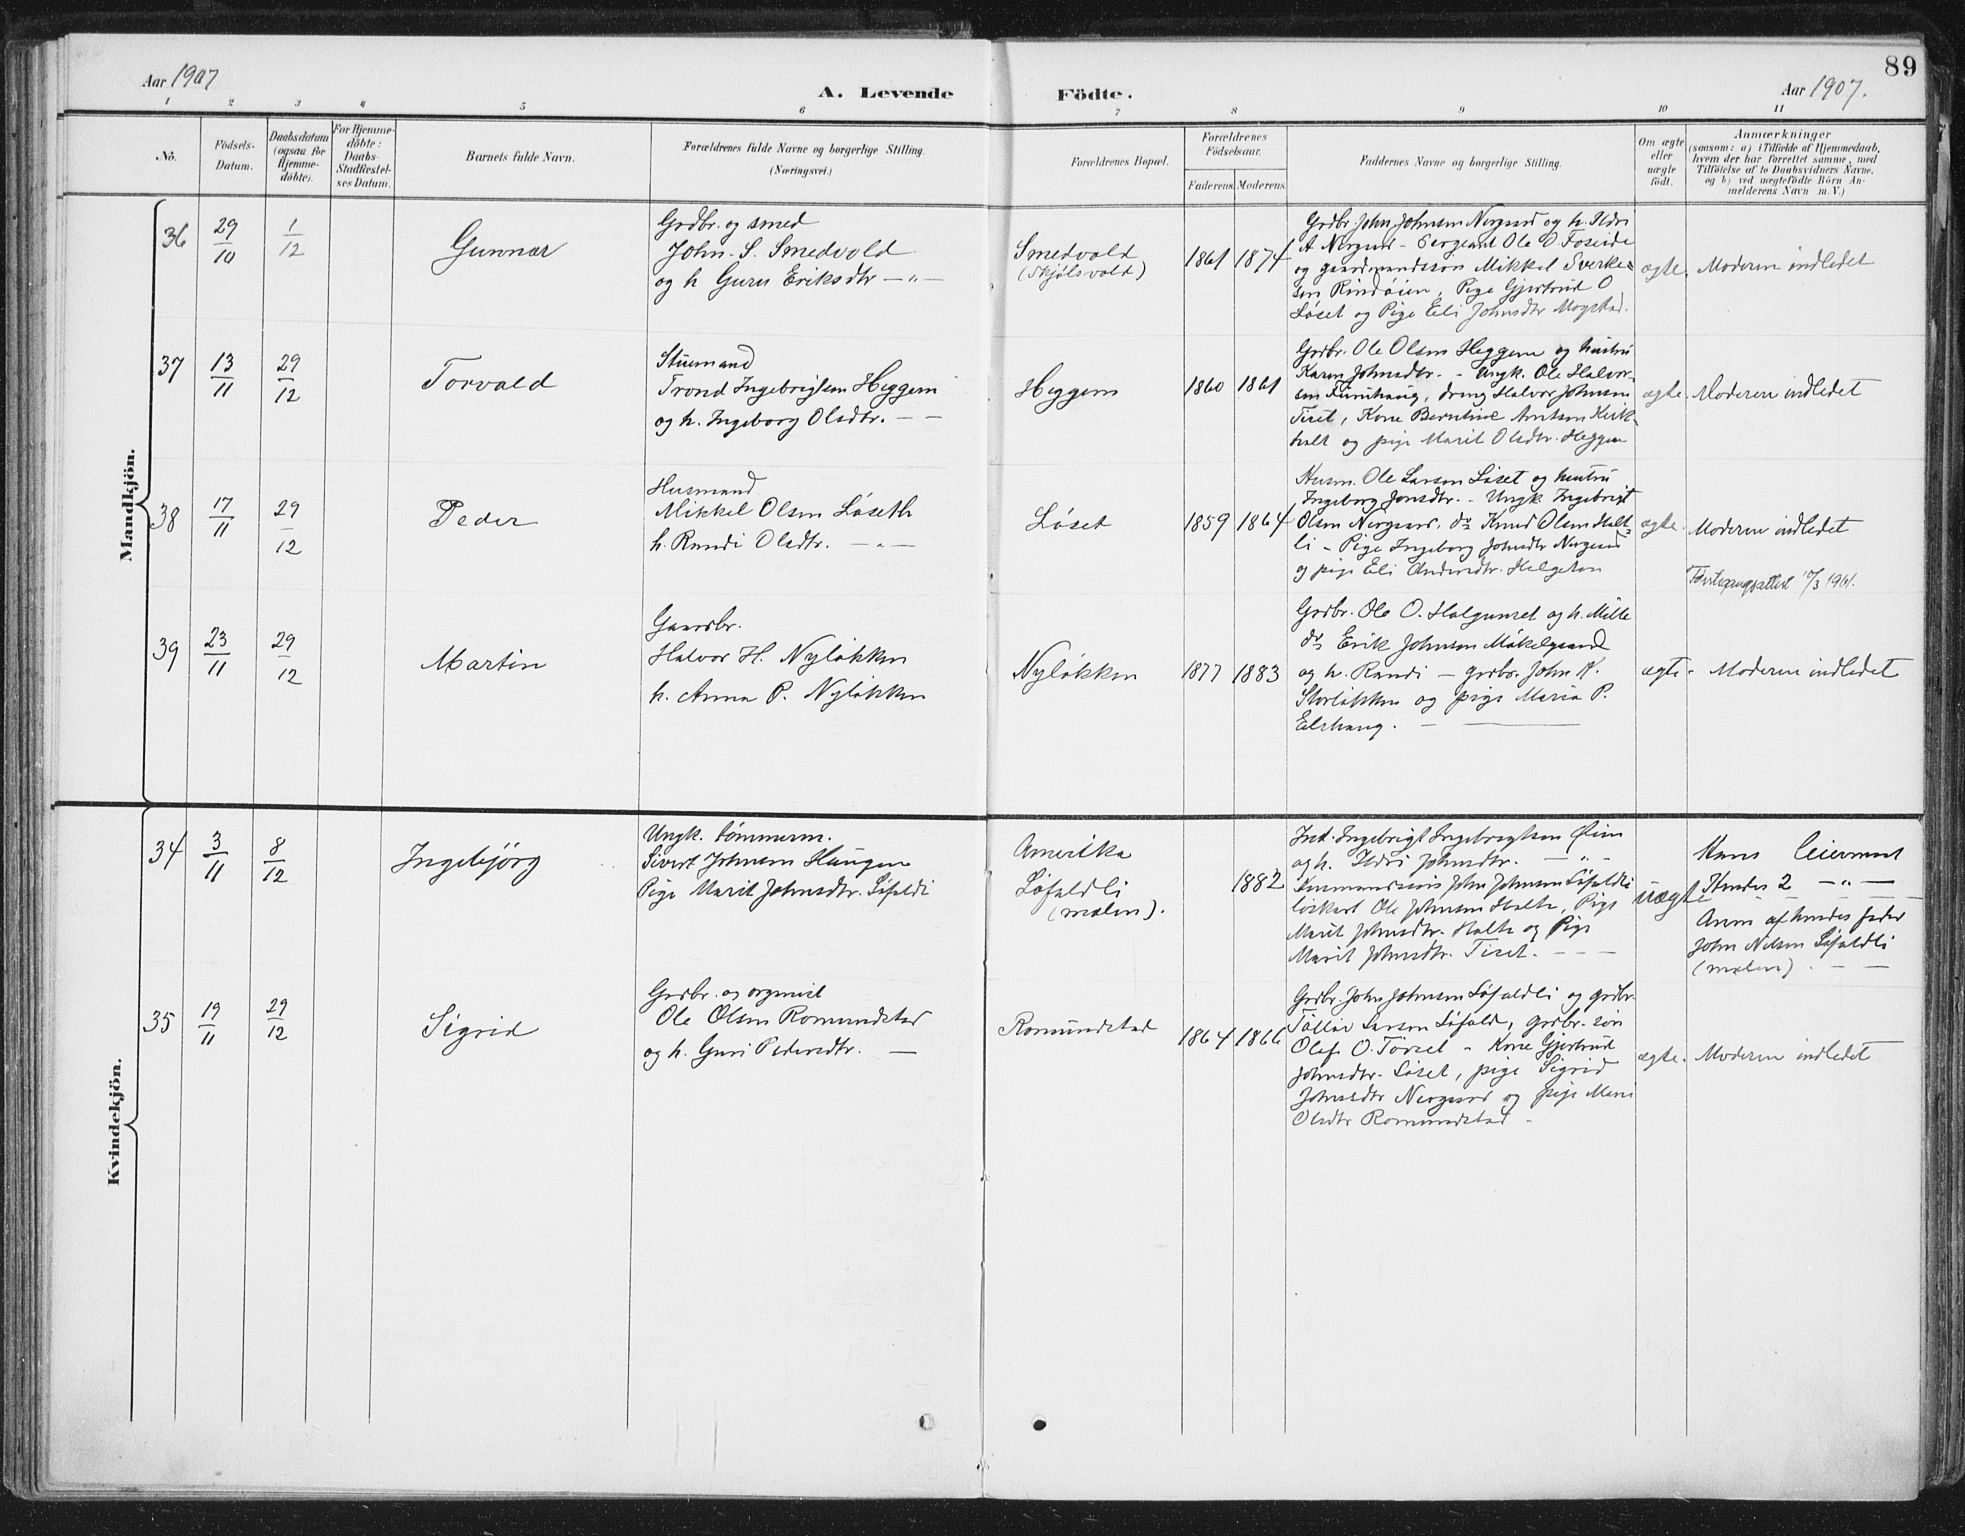 Aar 1907
A. Levende Födte.
Aar 1907.
89
1 2 3 4 5 6 7 8 9 10 11
No.
Födsels-
Datum.
Daabsdatum
(ogsaa for
Hjemme-
döbte).
For Hjemme-
döbte:
Daabs-
Stadfæstel-
ses Datum.
Barnets fulde Navn.
Forældrenes fulde Navne og borgerlige Stilling.
(Næringsvei.)
Forældrenes Bopæl.
Forældrenes
Födselsaar.
Faderens. Moderens.
Faddernes Navne og borgerlige Stilling.
Om ægte
eller
uægte
födt.
Anmærkninger
(saasom: a) i Tilfælde af Hjemmedaab,
hvem der har forrettet samme, med
Tilföielse af to Daabsvidners Navne,
og b) ved uægtefödte Börn An-
melderens Navn m. V.)
Mandkjön.
36
29/10
1/12
Gunnar
Grdbr. og smed
John S. Smedvold
og h Guru Eriksdtr -"-
Smedvold
(Skjölsvold)
1861 1874
Grdbr. John Johnsen Nergaard og h. Ildri
A Nergard - Sergeant Ole O Foseide
og gaardmandssön Mikkel Sverke-
sen Rindöien, Pige Gjertrud O
Löset og Pige Eli Johnsdtr Mogstad.
ægte.
Moderen indledet
37
13/11
29/12
Torvald
Stuemand
Trond Ingebrigtsen Heggem
og h. Ingeborg Olsdtr. - -
Heggem
1860 1861
Grdbr. Ole Olsen Heggem og hustru
Karen Johnsdtr. - Ungk. Ole Halvor-
sen Furuhaug, dreng Halvor Johnsen
Tiset, Kone Berntine Arntsen Kirk-
holt og pige Marit Olsdtr. Heggem
ægte.
Moderen indledet
38
17/11
29/12
Peder
Husmand
Mikkel Olsen Löseth
h. Randi Olsdtr. -"-
Löset
1859 1864
Husm. Ole Larsen Löset og hustru
Ingeborg Jonsdtr. - Ungk Ingebrigt
Olsen Nergaard. do Knud Olsen Halt-
li - Pige Ingeborg Johnsdtr Nergaard
og pige Eli Andersdtr. Helgetun
ægte.
Moderen indledet
10/3 1961.
39
23/11
29/12
Martin
Gaardbr.
Halvor H. Nylökken
h. Anna P. Nylökken
Nylökken
1877 1883
Grdbr. Ole O. Halgunset og h. Mille
do Erik Johnsen Mikelgaard
og h. Randi - grdbr. John K.
Storlökken og pige Maria P.
Elshaug. -
ægte.
Moderen indledet
Kvindekjön.
34
3/11
8/12
Ingebjörg
Ungk. tömmerm.
Sivert Johnsen Haugen
Pige Marit Johnsdtr. Löfaldli
Amerika
Löfaldli
(molen).
1882
Ind. Ingebrigt Ingebrigtsen Öien
og h. Ildri Johnsdtr. -"-
Husmandssön John Johnsen Löfaldli
Ole Johnsen Holte, Pige
Marit Johnsdtr. Holte og Pige
Marit Johnsdtr. Tiset. - - -
uægte
Hans leiermaal
Hendes 2 -"-
Anm af hendes fader
John Nilsen Löfaldli
(molen). - -
35
19/11
29/12
Sigrid
Grdbr. og organist
Ole Olsen Romundstad
og h. Guri Pedersdtr. -
Romundstad
1864 1866
Grdbr. John Johnsen Löfaldli og grdbr.
Larsen Löfald, grdbr. sön
Olaf O. Törset - Kone Gjertrud
Johnsdtr. Löset, pige Sigrid
Johnsdtr Nergaard og pige Mari
Olsdtr Romundstad -
ægte.
Moderen indledet